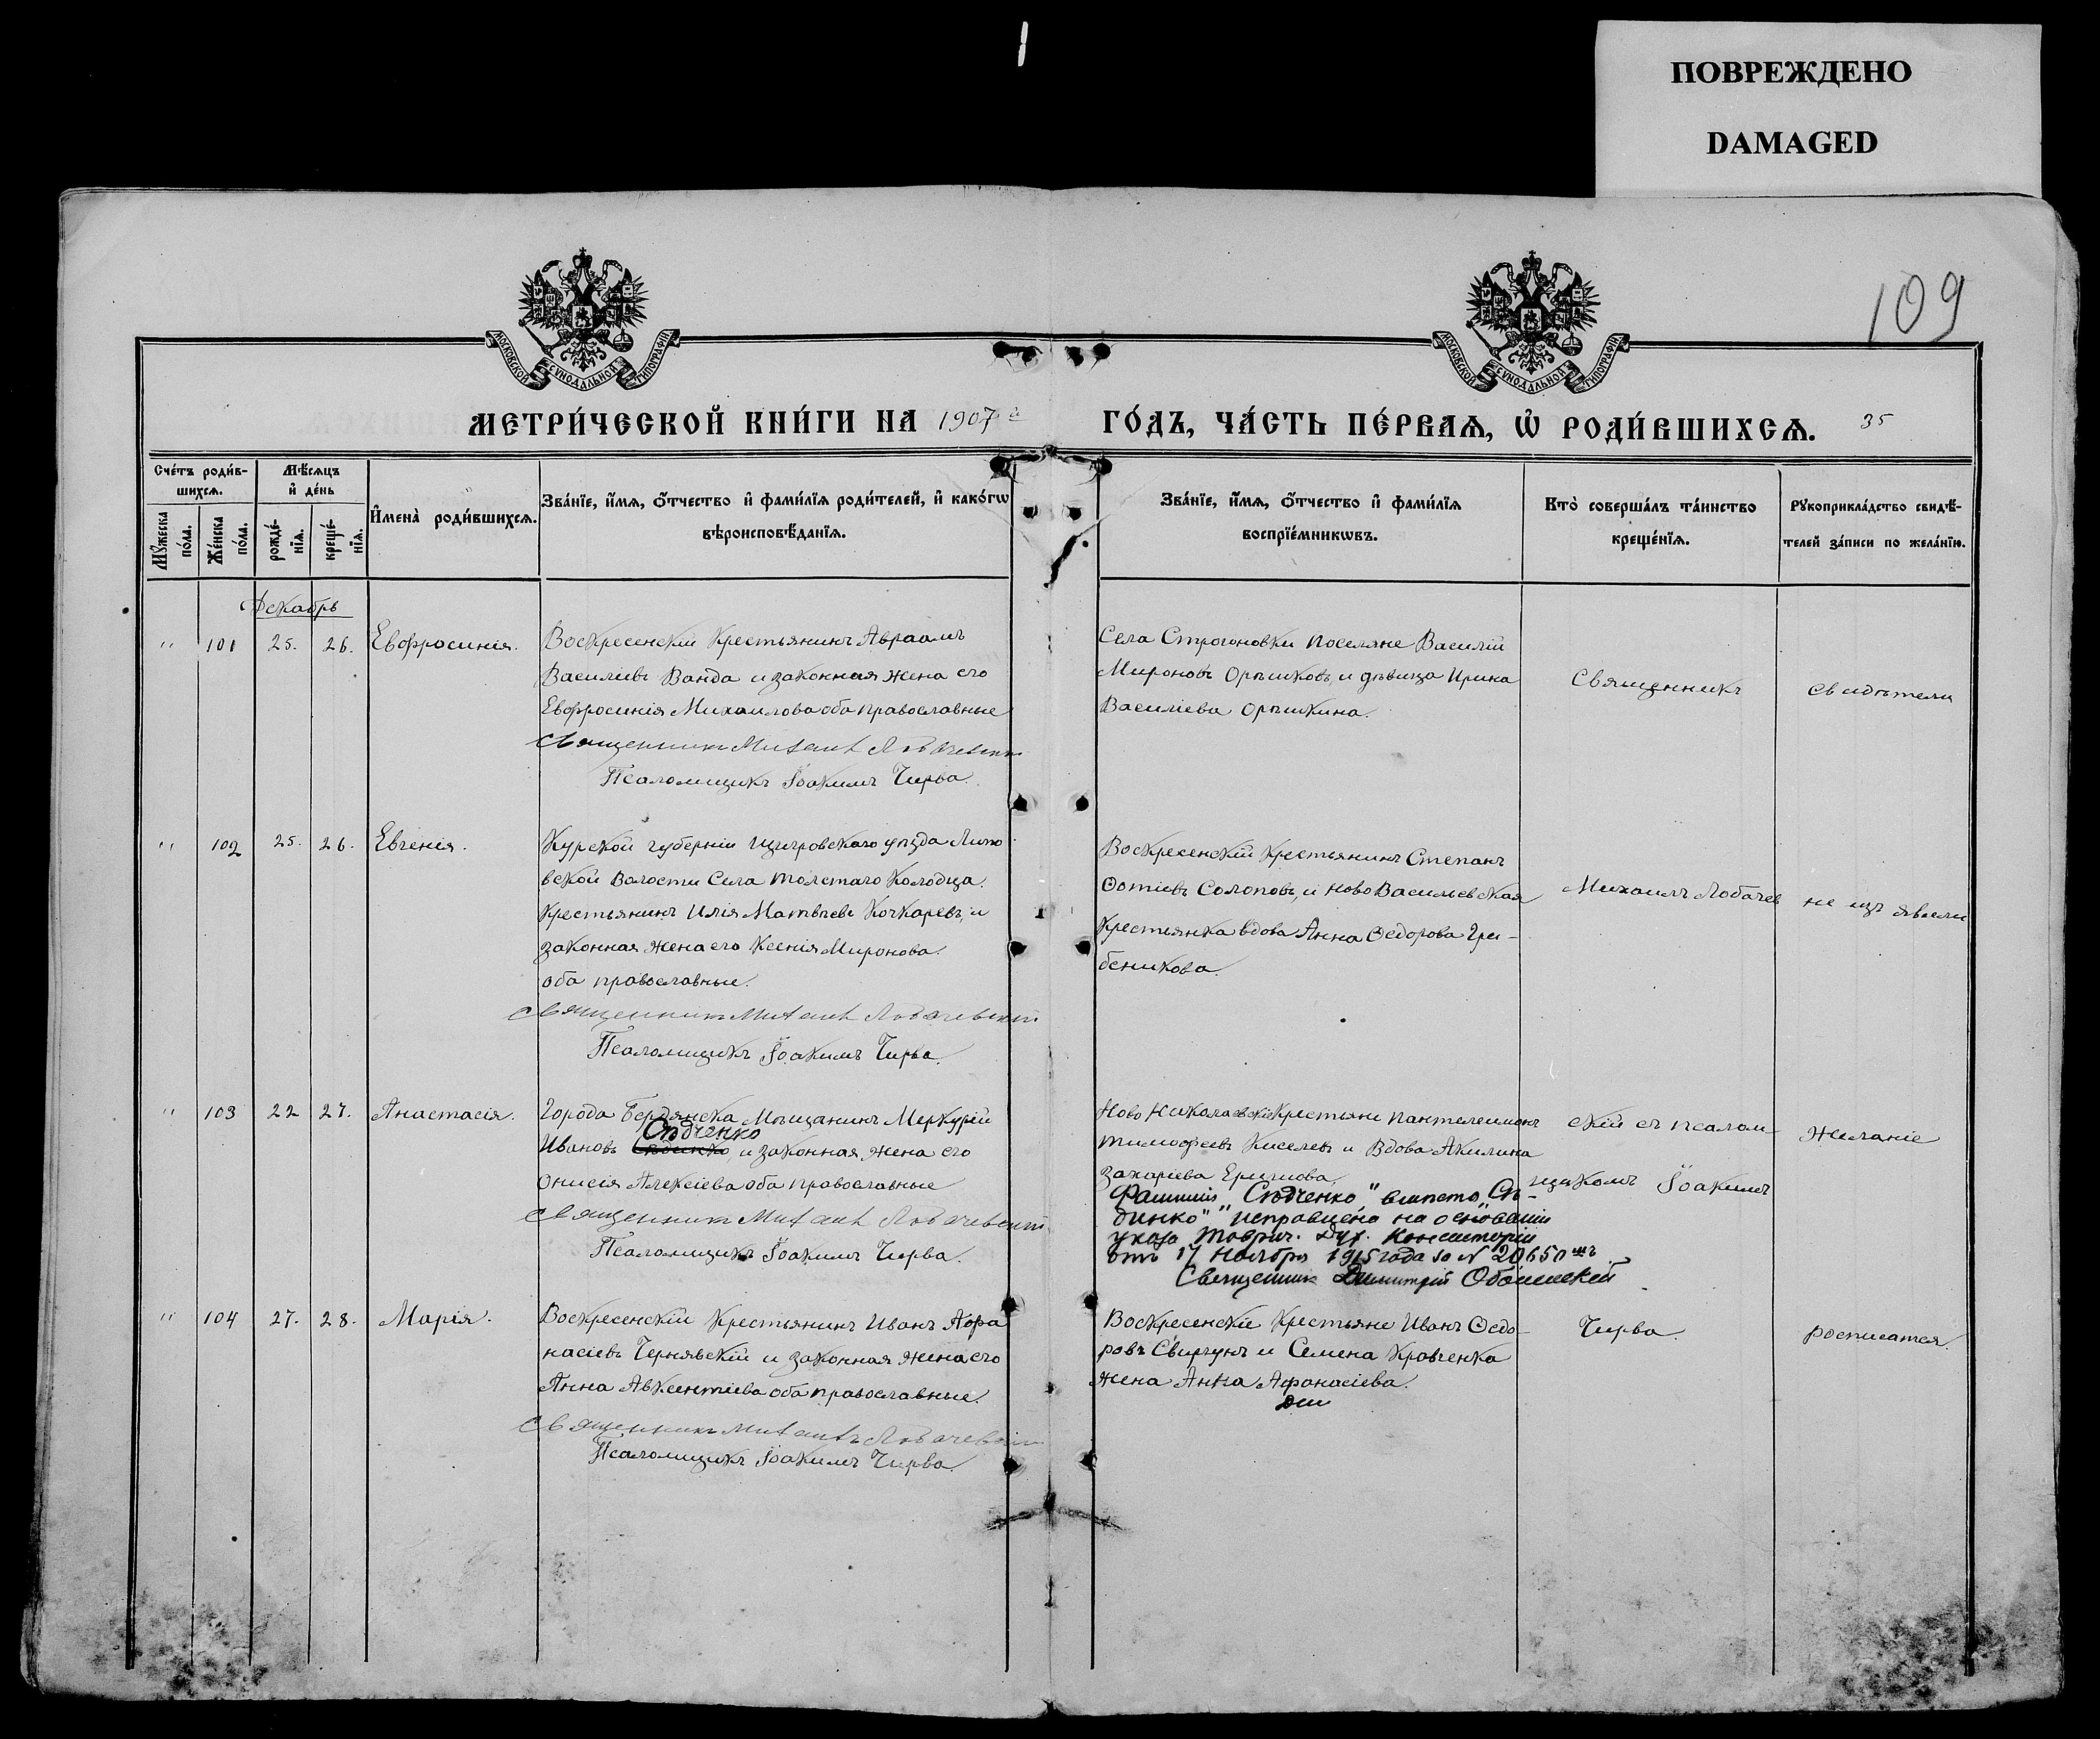 ПОВРЕЖДЕНО
DAMAGED
109
МОСКОВСКОЙ СѴНОДАЛЬНОЙ ТИПОГРАФІИ
МОСКОВСКОЙ СѴНОДАЛЬНОЙ ТИПОГРАФІИ
МЕТРИ́ЧЕСКОЙ КНИ́ГИ НА 1907 й ГО́ДЪ, ЧА́СТЬ ПЕ́РВАѦ, Ѡ РОДИ́ВШИХСѦ. 35
Сче́тъ роди́в-
шихсѧ.
Мѣ́сѧцъ
и҆ де́нь
Мꙋ́жеска по́ла.
Же́нска по́ла.
рожде́-
нїѧ.
креще́-
нїѧ.
И҆мена̀ роди́вшихсѧ.
Зва́нїе, и҆́мѧ, ѻ҆́тчество и҆ фами́лїѧ роди́телей, и҆ како́гѡ
вѣроисповѣ́данїѧ.
Зва́нїе, и҆́мѧ, ѻ҆́тчество и҆ фами́лїѧ
воспрїе́мникѡвъ.
Кто̀ соверша́лъ та́инство
креще́нїѧ.
Рꙋкоприкла́дство свидѣ́-
телей за́писи по жела́нїю.
Декабрь
" 101 25. 26. Евфросинія.
Воскресенскій Крестьянинъ Авраамъ
Василіевъ Ванда и законная жена его
Евфросинія Михаилова оба православные
Священникъ Михаилъ Лобачевскій
Псаломщикъ Іоакимъ Чирва.
Села Строгоновки поселяне Василій
Мироновъ Орѣшковъ и дѣвица Ирина
Василіева Орѣшкина.
Священникъ
Свидѣтели
" 102 25. 26. Евгенія.
Курской губерніи Щигровскаго уѣзда Липо
вской Волости Села Толстаго Колодца
Крестьянинъ Илія Матвѣевъ Кочкаревъ, и
законная жена его Ксенія Миронова
оба православные.
Священникъ Михаилъ Лобачевскій
Псаломщикъ Іоакимъ Чирва.
Воскресенскій Крестьянинъ Степанъ
Ѳотіевъ Солоповъ, и Ново Васильевская
Крестьянка вдова Анна Ѳедорова Гре-
беникова.
Михаилъ Лобачев
не изъявили
" 103 22 27. Анастасія.
Города Бердянска Мѣщанинъ Меркурій
Сѣдченко
Ивановъ Сѣдинко, и законная жена его
Онисія Алексіева оба православные
Священникъ Михаилъ Лобачевскій
Псаломщикъ Іоакимъ Чирва.
Ново Николаевскіе Крестьяне Пантелеимонъ
Тимофеевъ Киселевъ и Вдова Акилина
Захаріева
Фамилія „Сѣдченко" вмѣсто „Сѣ-
динко" исправлена на основаніи
указа Таврич. Дух. Консисторіи
отъ 17 Ноября 1915 года за № 20650 мъ
Священникъ Димитрій
скій съ псалом-
щикомъ Іоакимъ
желаніе
" 104 27. 28. Марія.
Воскресенскій Крестьянинъ Иванъ Аѳа
насіевъ Чернявскій и законная жена его
Анна Авксентіева оба православные.
Священникъ Михаилъ Лобачевскій
Псаломщикъ Іоакимъ Чирва.
Воскресенскіе Крестьяне Иванъ Ѳедо-
ровъ Свиргунъ и Семена Кравченка
жена Анна Афанасіева.
Чирва.
росписатся.